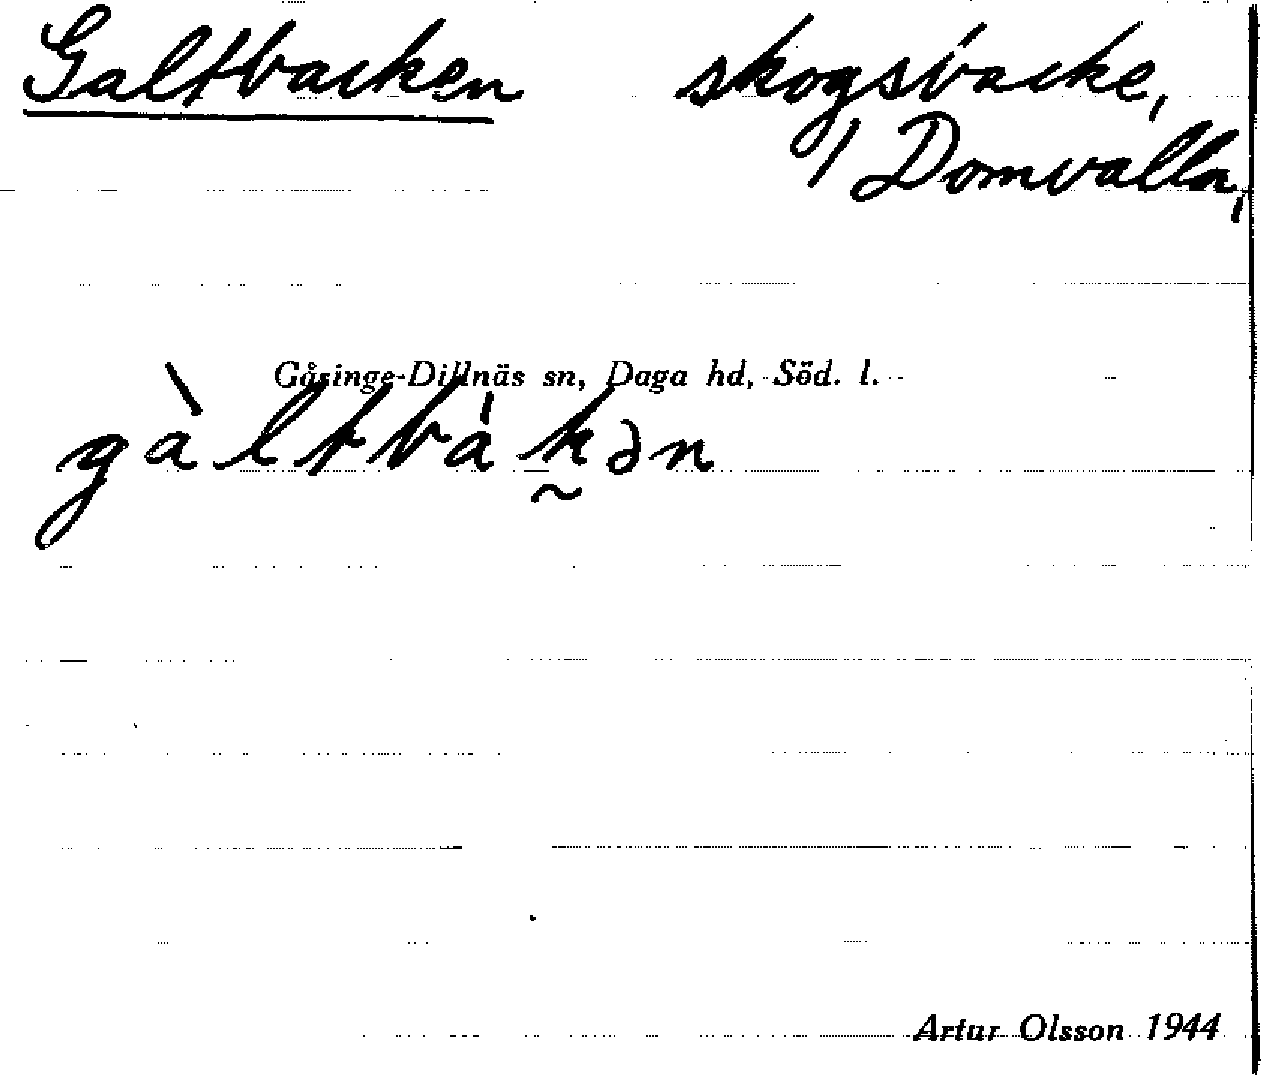 Galtbacken skogsbacke,
/ Domvalla,
Gåsinge-Dillnäs sn, Daga hd, Söd. l.
gàltbákən
Artur Olsson 1944